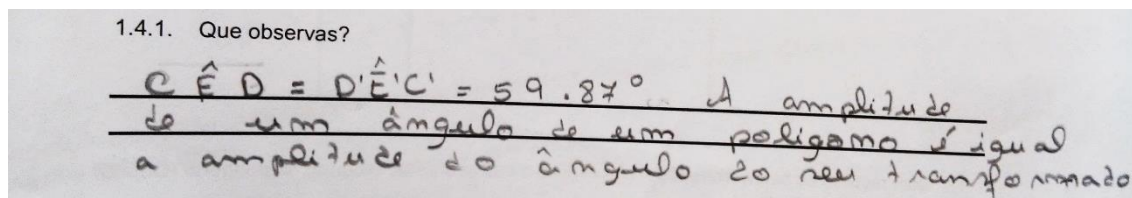 1.4.1. Que observas?
C Ê D = D'Ê'C' = 59.87° A amplitude
de um ângulo de um poligono é igual
a amplitude do ângulo do seu transformado